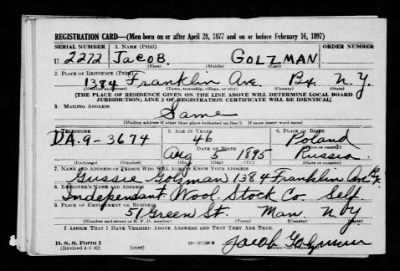 REGISTRATION CARD—(Men born on or after April 28, 1877 and on or before February 16, 1897)
SERIAL NUMBER 1. NAME (Print) ORDER NUMBER
U. 2272 JACOB. GOLZMAN
(First) (Middle) (Last)
2. PLACE OF RESIDENCE (Print)
1384 Franklin Ave. Bx. N.Y.
(Number and street) (Town, township, village, or city) (County) (State)
[THE PLACE OF RESIDENCE GIVEN ON THE LINE ABOVE WILL DETERMINE LOCAL BOARD
JURISDICTION; LINE 2 OF REGISTRATION CERTIFICATE WILL BE IDENTICAL]
3. MAILING ADDRESS
Same
[Mailing address if other than place indicated on line 2. If same insert word same]
4. TELEPHONE 5. AGE IN YEARS 6. PLACE OF BIRTH
DA.9-3674 46 Poland
DATE OF BIRTH (Town or county)
Aug 5 1895 Russia
(Exchange) (Number) (Mo.) (Day) (Yr.) (State or country)
7. NAME AND ADDRESS OF PERSON WHO WILL ALWAYS KNOW YOUR ADDRESS
Gussie Golzman 1384 Franklin Ave Bx
8. EMPLOYER'S NAME AND ADDRESS
Independant Wool Stock Co. Self
9. PLACE OF EMPLOYMENT OR BUSINESS
51 Green St. Man. N Y
(Number and street or R. F. D. number) (Town) (County) (State)
I AFFIRM THAT I HAVE VERIFIED ABOVE ANSWERS AND THAT THEY ARE TRUE.
D. S. S. Form 1
Jacob Golzman